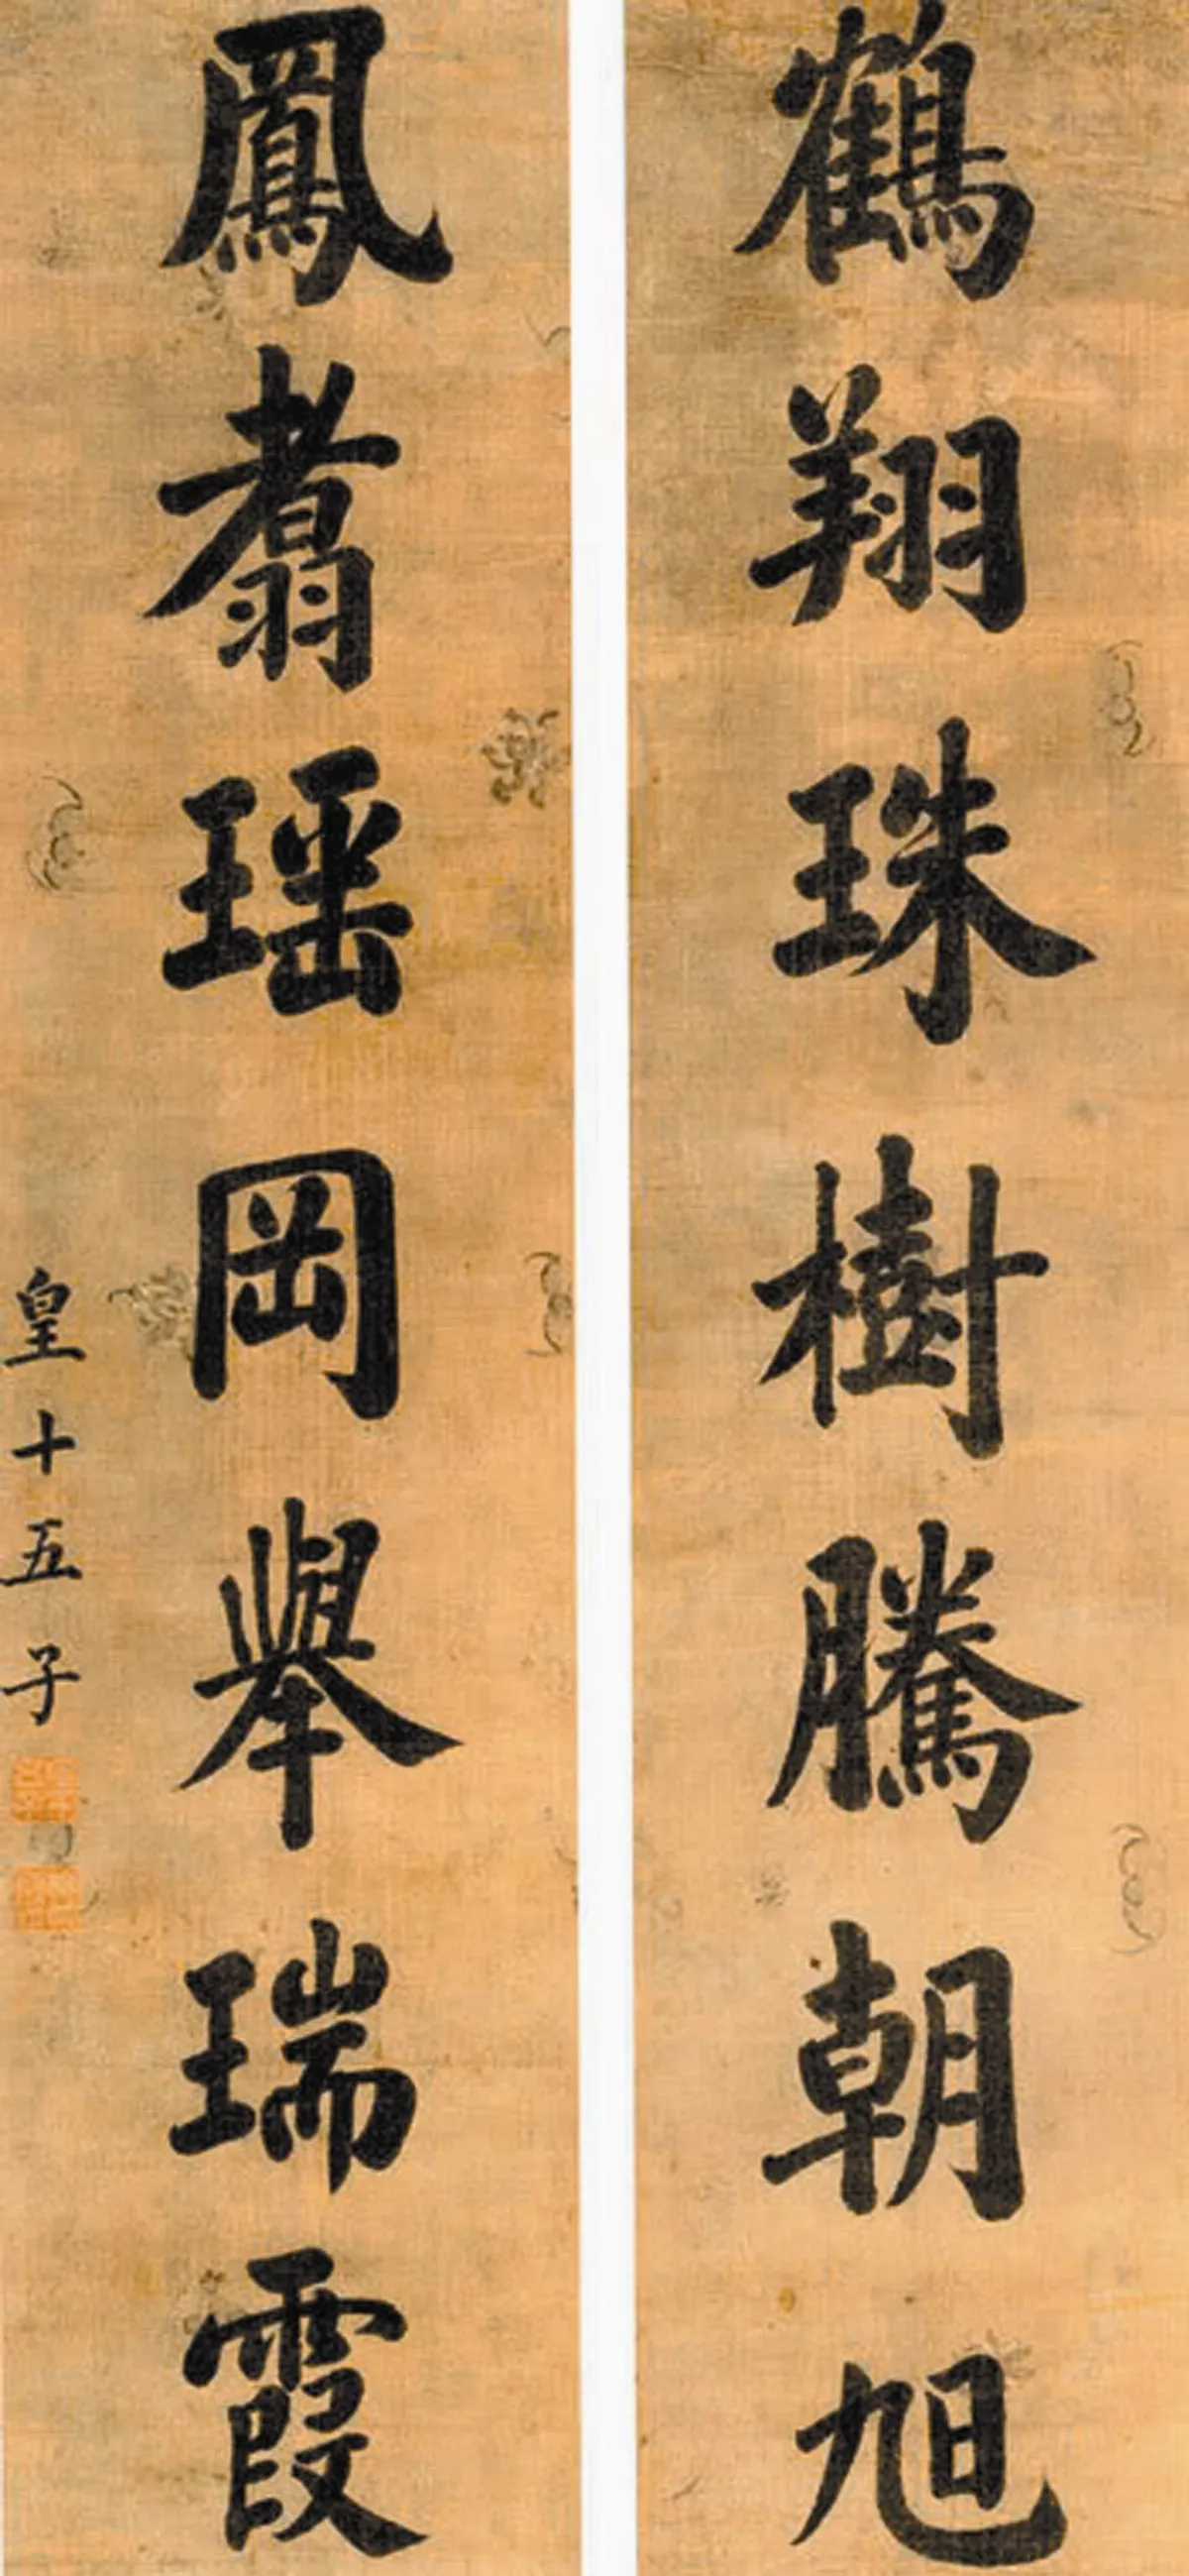 鶴翔珠樹騰朝旭
鳳翥瑶岡舉瑞霞
皇十五子